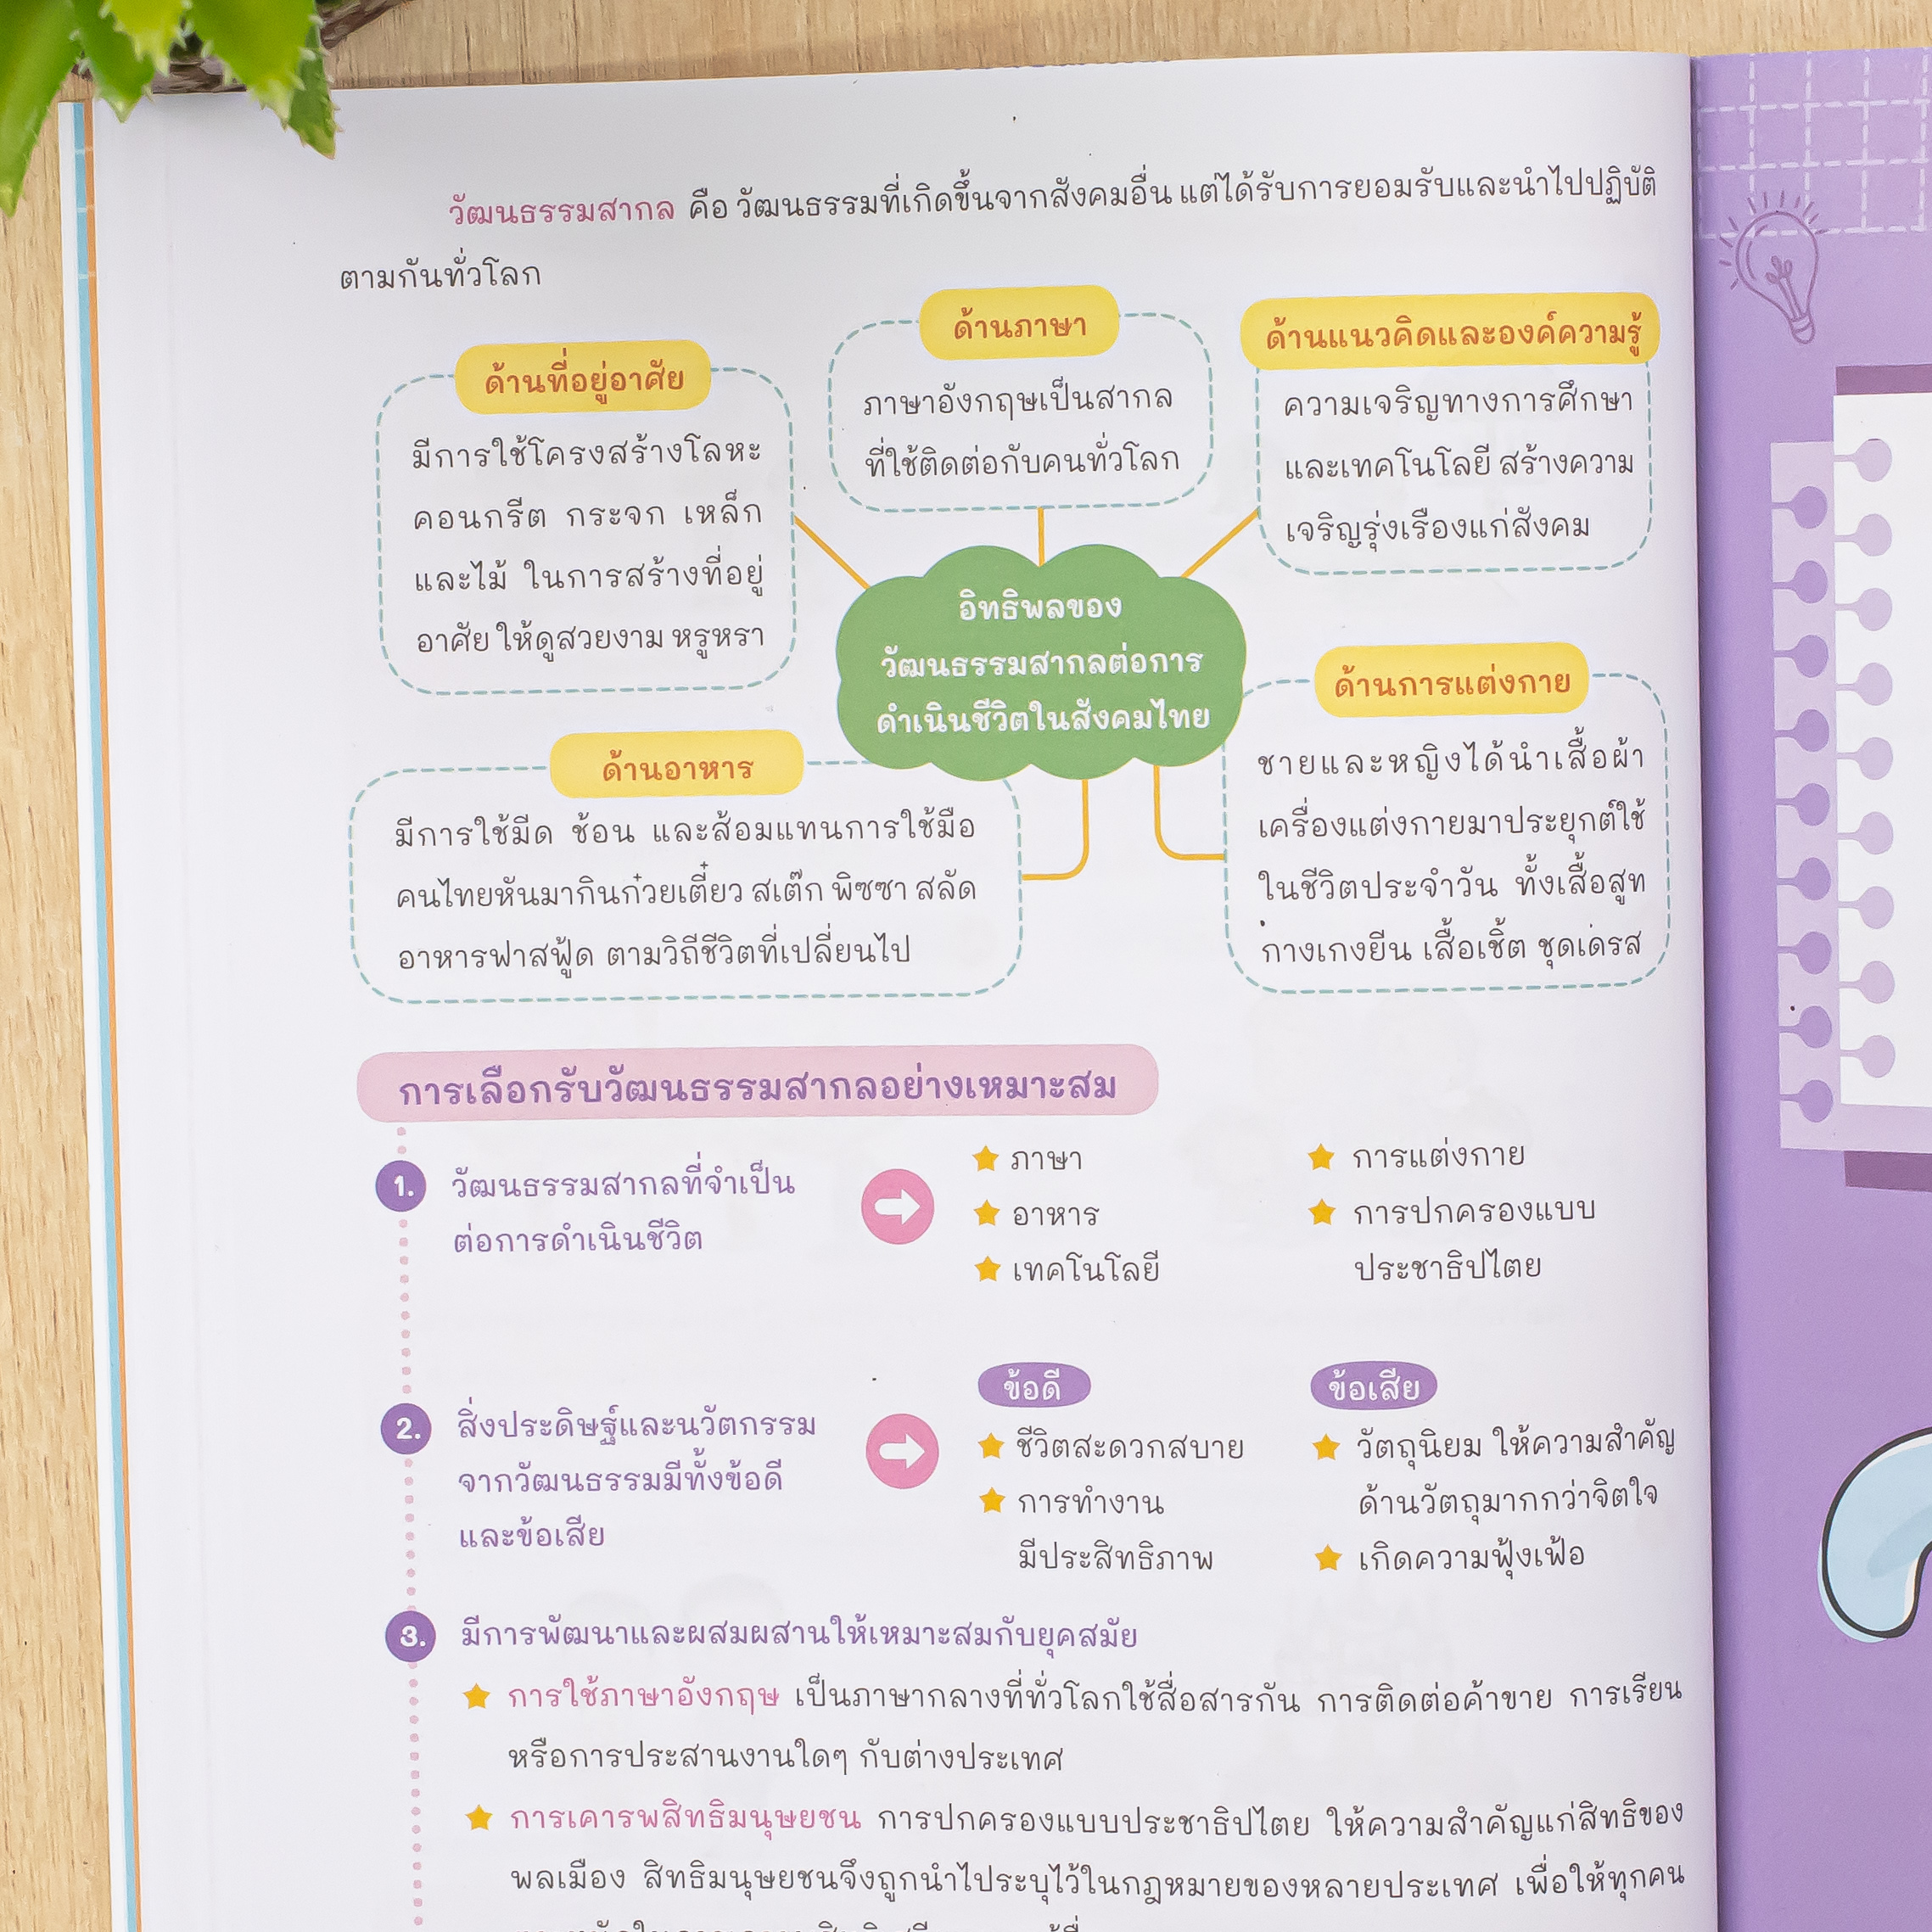 วัฒนธรรมสากล คือ วัฒนธรรมที่เกิดขึ้นจากสังคมอื่น แต่ได้รับการยอมรับและนำไปปฏิบัติ
ตามกันทั่วโลก
ด้านที่อยู่อาศัย
มีการใช้โครงสร้างโลหะ
คอนกรีต กระจก เหล็ก
และไม้ ในการสร้างที่อยู่
อาศัย ให้ดูสวยงาม หรูหรา
ด้านภาษา
ภาษาอังกฤษเป็นสากล
ที่ใช้ติดต่อกับคนทั่วโลก
ด้านแนวคิดและองค์ความรู้
ความเจริญทางการศึกษา
และเทคโนโลยี สร้างความ
เจริญรุ่งเรืองแก่สังคม
อิทธิพลของ
วัฒนธรรมสากลต่อการ
ดำเนินชีวิตในสังคมไทย
ด้านอาหาร
มีการใช้มีด ช้อน และส้อมแทนการใช้มือ
คนไทยหันมากินก๋วยเตี๋ยว สเต๊ก พิซซา สลัด
อาหารฟาสฟู้ด ตามวิถีชีวิตที่เปลี่ยนไป
ด้านการแต่งกาย
ชายและหญิงได้นำเสื้อผ้า
เครื่องแต่งกายมาประยุกต์ใช้
ในชีวิตประจำวัน ทั้งเสื้อสูท
กางเกงยีน เสื้อเชิ้ต ชุดเดรส
การเลือกรับวัฒนธรรมสากลอย่างเหมาะสม
1. วัฒนธรรมสากลที่จำเป็น
ต่อการดำเนินชีวิต
ภาษา
อาหาร
เทคโนโลยี
การแต่งกาย
การปกครองแบบ
ประชาธิปไตย
2. สิ่งประดิษฐ์และนวัตกรรม
จากวัฒนธรรมมีทั้งข้อดี
และข้อเสีย
ข้อดี
ชีวิตสะดวกสบาย
การทำงาน
มีประสิทธิภาพ
ข้อเสีย
วัตถุนิยม ให้ความสำคัญ
ด้านวัตถุมากกว่าจิตใจ
เกิดความฟุ้งเฟ้อ
3. มีการพัฒนาและผสมผสานให้เหมาะสมกับยุคสมัย
การใช้ภาษาอังกฤษ เป็นภาษากลางที่ทั่วโลกใช้สื่อสารกัน การติดต่อค้าขาย การเรียน
หรือการประสานงานใดๆ กับต่างประเทศ
การเคารพสิทธิมนุษยชน การปกครองแบบประชาธิปไตย ให้ความสำคัญแก่สิทธิของ
พลเมือง สิทธิมนุษยชนจึงถูกนำไประบุไว้ในกฎหมายของหลายประเทศ เพื่อให้ทุกคน